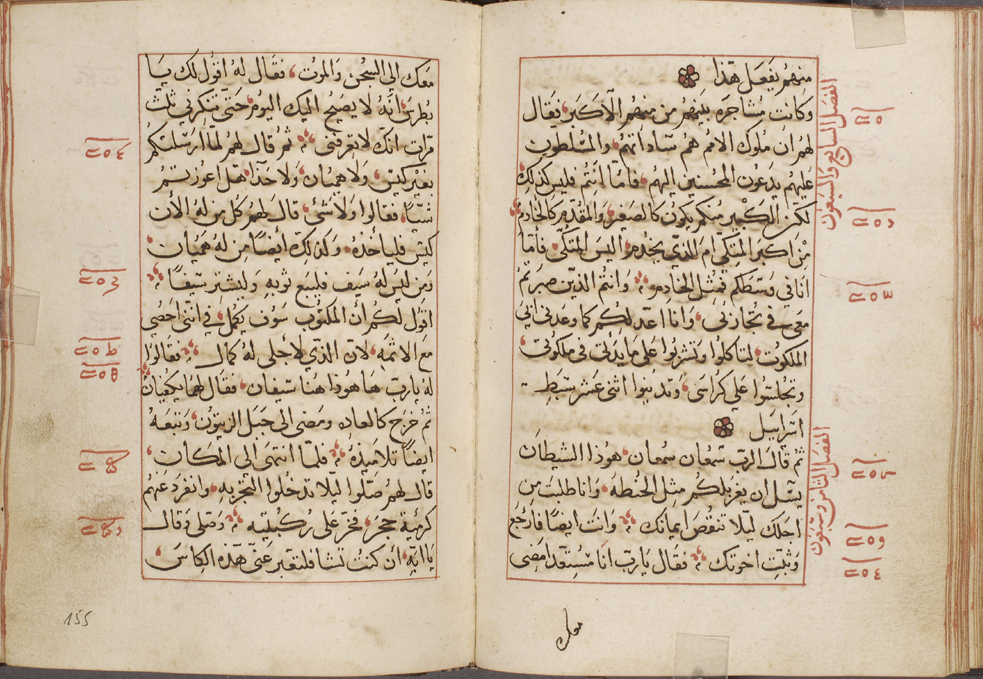 منهم يفعل هذا
وكانت مشاجره بينهم من منهم الاكبر فقال
لهم ان ملوك الامم هم ساداتهم والمسلطون
عليهم يدعون المحسنين اليهم فاما انتم فليس كذلك
لكن الكبير منكم يكون كالصغير والمقدم كالخادم
من اكبر المتكي ام الذي يخدم اليس المتكي فاما
انا في وسطكم فمثل الخادم وانتم الذين صبرتم
معي في تجاربي وانا اعد لكم كما وعدني ابي
الملكوت لتاكلوا وتشربوا على مايدتي في ملكوتي
وتجلسوا على كراسي وتدينوا اثنى عشر سبط
اسراييل
ثم قال الرب سمعان سمعان هوذا الشيطان
يسل ان يغربلكم مثل الحنطه وانا طلبت من
اجلك ليلا تنقص ايمانك وانت ايضا فارجع
وثبت اخوتك فقال يارب انا مستعد امضي
معك
الفصل السابع والسبعون
الفصل الثامن وسبعون
معك الى السجن والموت فقال له اقول لك يا
بطرس انه لا يصيح الديك اليوم حتى تنكرني ثلث
مرات انك لا تعرفني ثم قال لهم لما ارسلتكم
بغير كيس ولا هميان ولا حذا هل اعوزتم
شيا فقالوا ولا شي قال لهم كل من له الان
كيس فلياخذه وكذلك ايضا من له هميان
ومن ليس له سيف فليبع ثوبه وليشتر سيفا
اقول لكم ان المكتوب سوف يكمل في انني احصي
مع الاثمه لان الذي لاجلي له كمال فقالوا
له يارب ها هوذا هنا سيفان فقال لهما يكفيان
ثم خرج كالعاده ومضى الى جبل الزيتون وتبعه
ايضا تلاميذه فلما انتهى الى المكان
قال لهم صلوا ليلا تدخلوا التجربه وانفرد عنهم
كرمية حجر فخر على ركبتيه وصلى وقال
يا ابه ان كنت تشا فلتعبر عني هذه الكاس
155